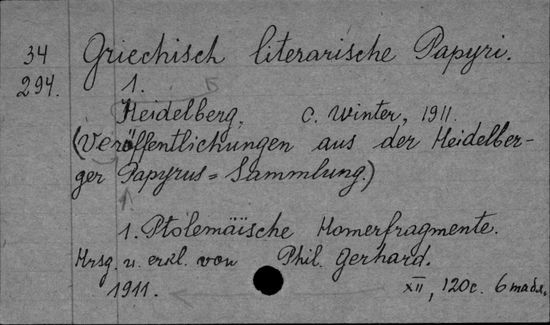 34 Griechisch literarische Papyri.
294. 1.
Heidelberg, C. Winter, 1911.
(Veröffentlichungen aus der Heidelber-
ger Papyrus=Sammlung.)
1. Ptolemäische Homerfragmente.
Hrsg. u. erkl. von Phil. Gerhard.
1911. XII, 120 с. 6 табл.